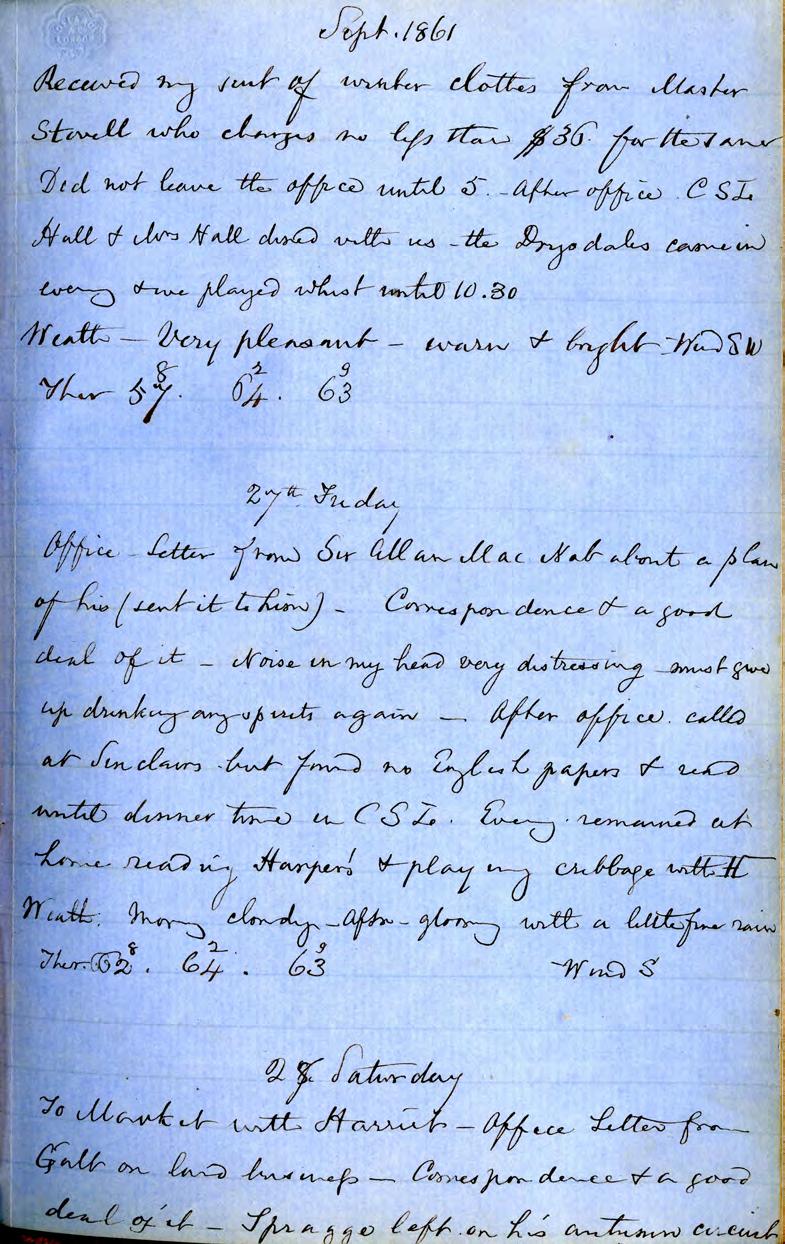 Sept. 1861
Received my suit of winter clothes from Master
Stovell who charges no less than $36. for the same
Did not leave the office until 5. - After office. C S Le
Hall & Mrs Hall dined with us - the Drysdales came in
eveng & we played whist until 10.30
Weath - Very pleasant - warm & bright - Wind SW
8 2 9
Ther 57. 64. 63
27th Friday
Office - Letter from Sir Allan Mac Nab about a plan
of his (sent it to him) - Correspondence & a good
deal of it - Noise in my head very distressing must give
up drinking any spirits again - After office. called
at Sinclairs but found no English papers & read
until dinner time in C S Le. Eveng. remained at
home reading Harper's & playing cribbage with H
Weath. Morng cloudy - Aftn - gloomy with a little fine rain
8 2 9
Ther. 62. 64. 63 Wind S
28 Saturday
To Market with Harriet - Office Letter from
Galt on land business - Correspondence & a good
deal of it - Spragge left on his autumn circuit